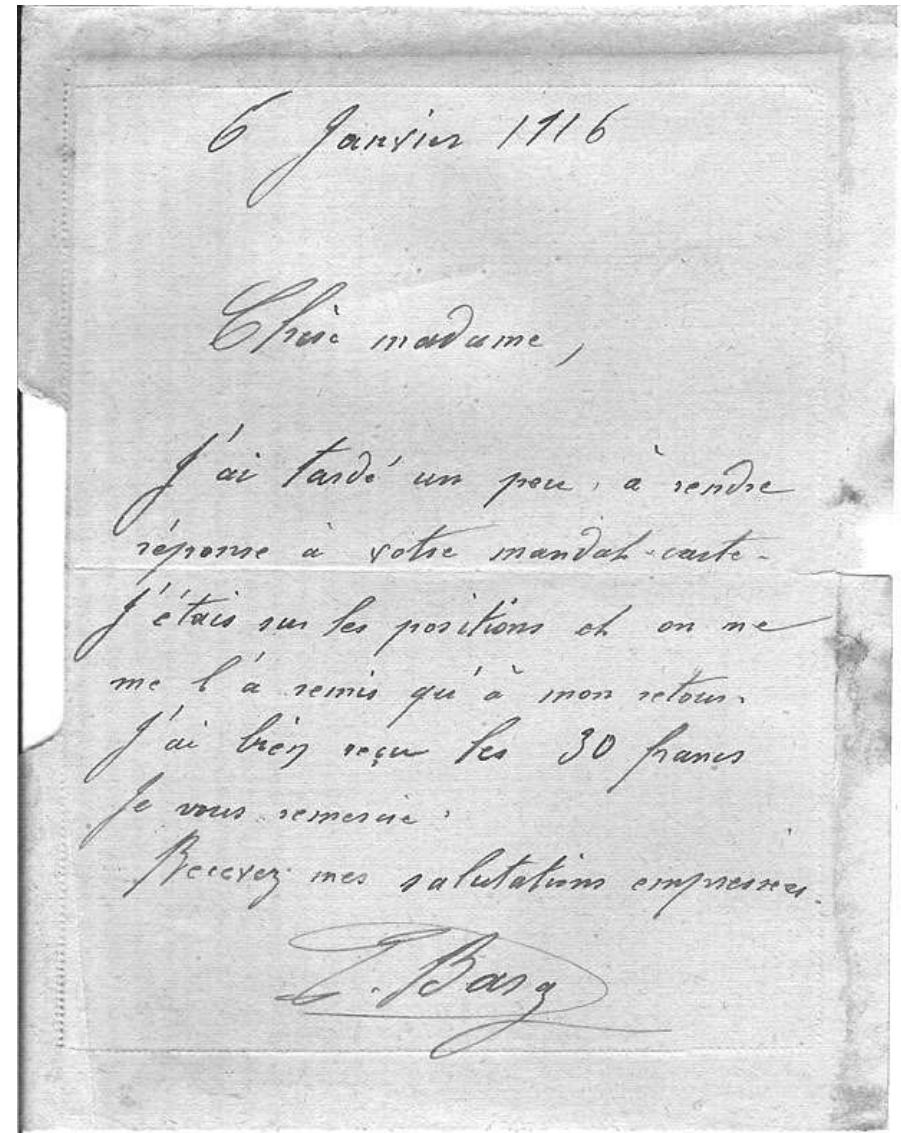 6 Janvier 1916
Chère madame,
J'ai tardé un peu, à rendre
réponse à votre mandat-carte.
J'étais sur les positions et on ne
me l'a remis qu'à mon retour.
J'ai bien reçu les 30 francs
Je vous remercie.
Recevez mes salutations empressées.